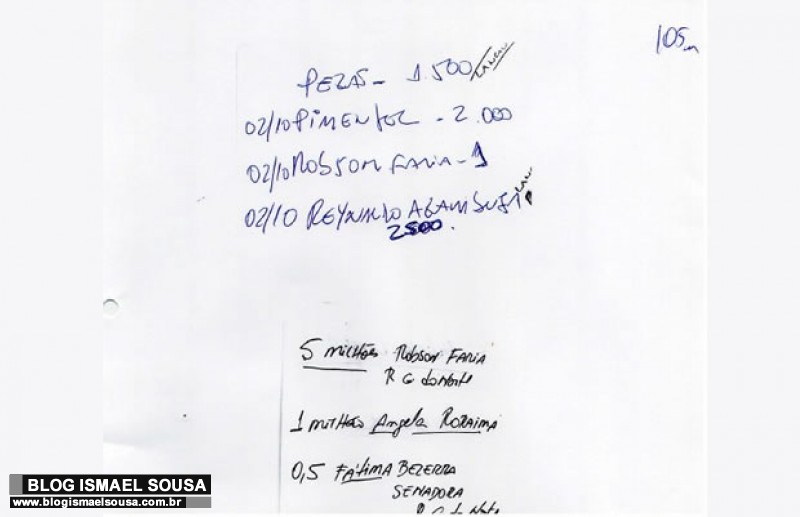 105
PEZAS - 1.500
02/10 PIMENTEL - 2.000
02/10 ROBSON FARIA - 1
02/10 REYNALDO
2500.
5 MILHÕES ROBSON FARIA
R G do Norte
1 MILHÃO Angela RORAIMA
0,5 FÁTIMA BEZERRA
SENADORA
BLOG ISMAEL SOUSA
www.blogismaelsousa.com.br